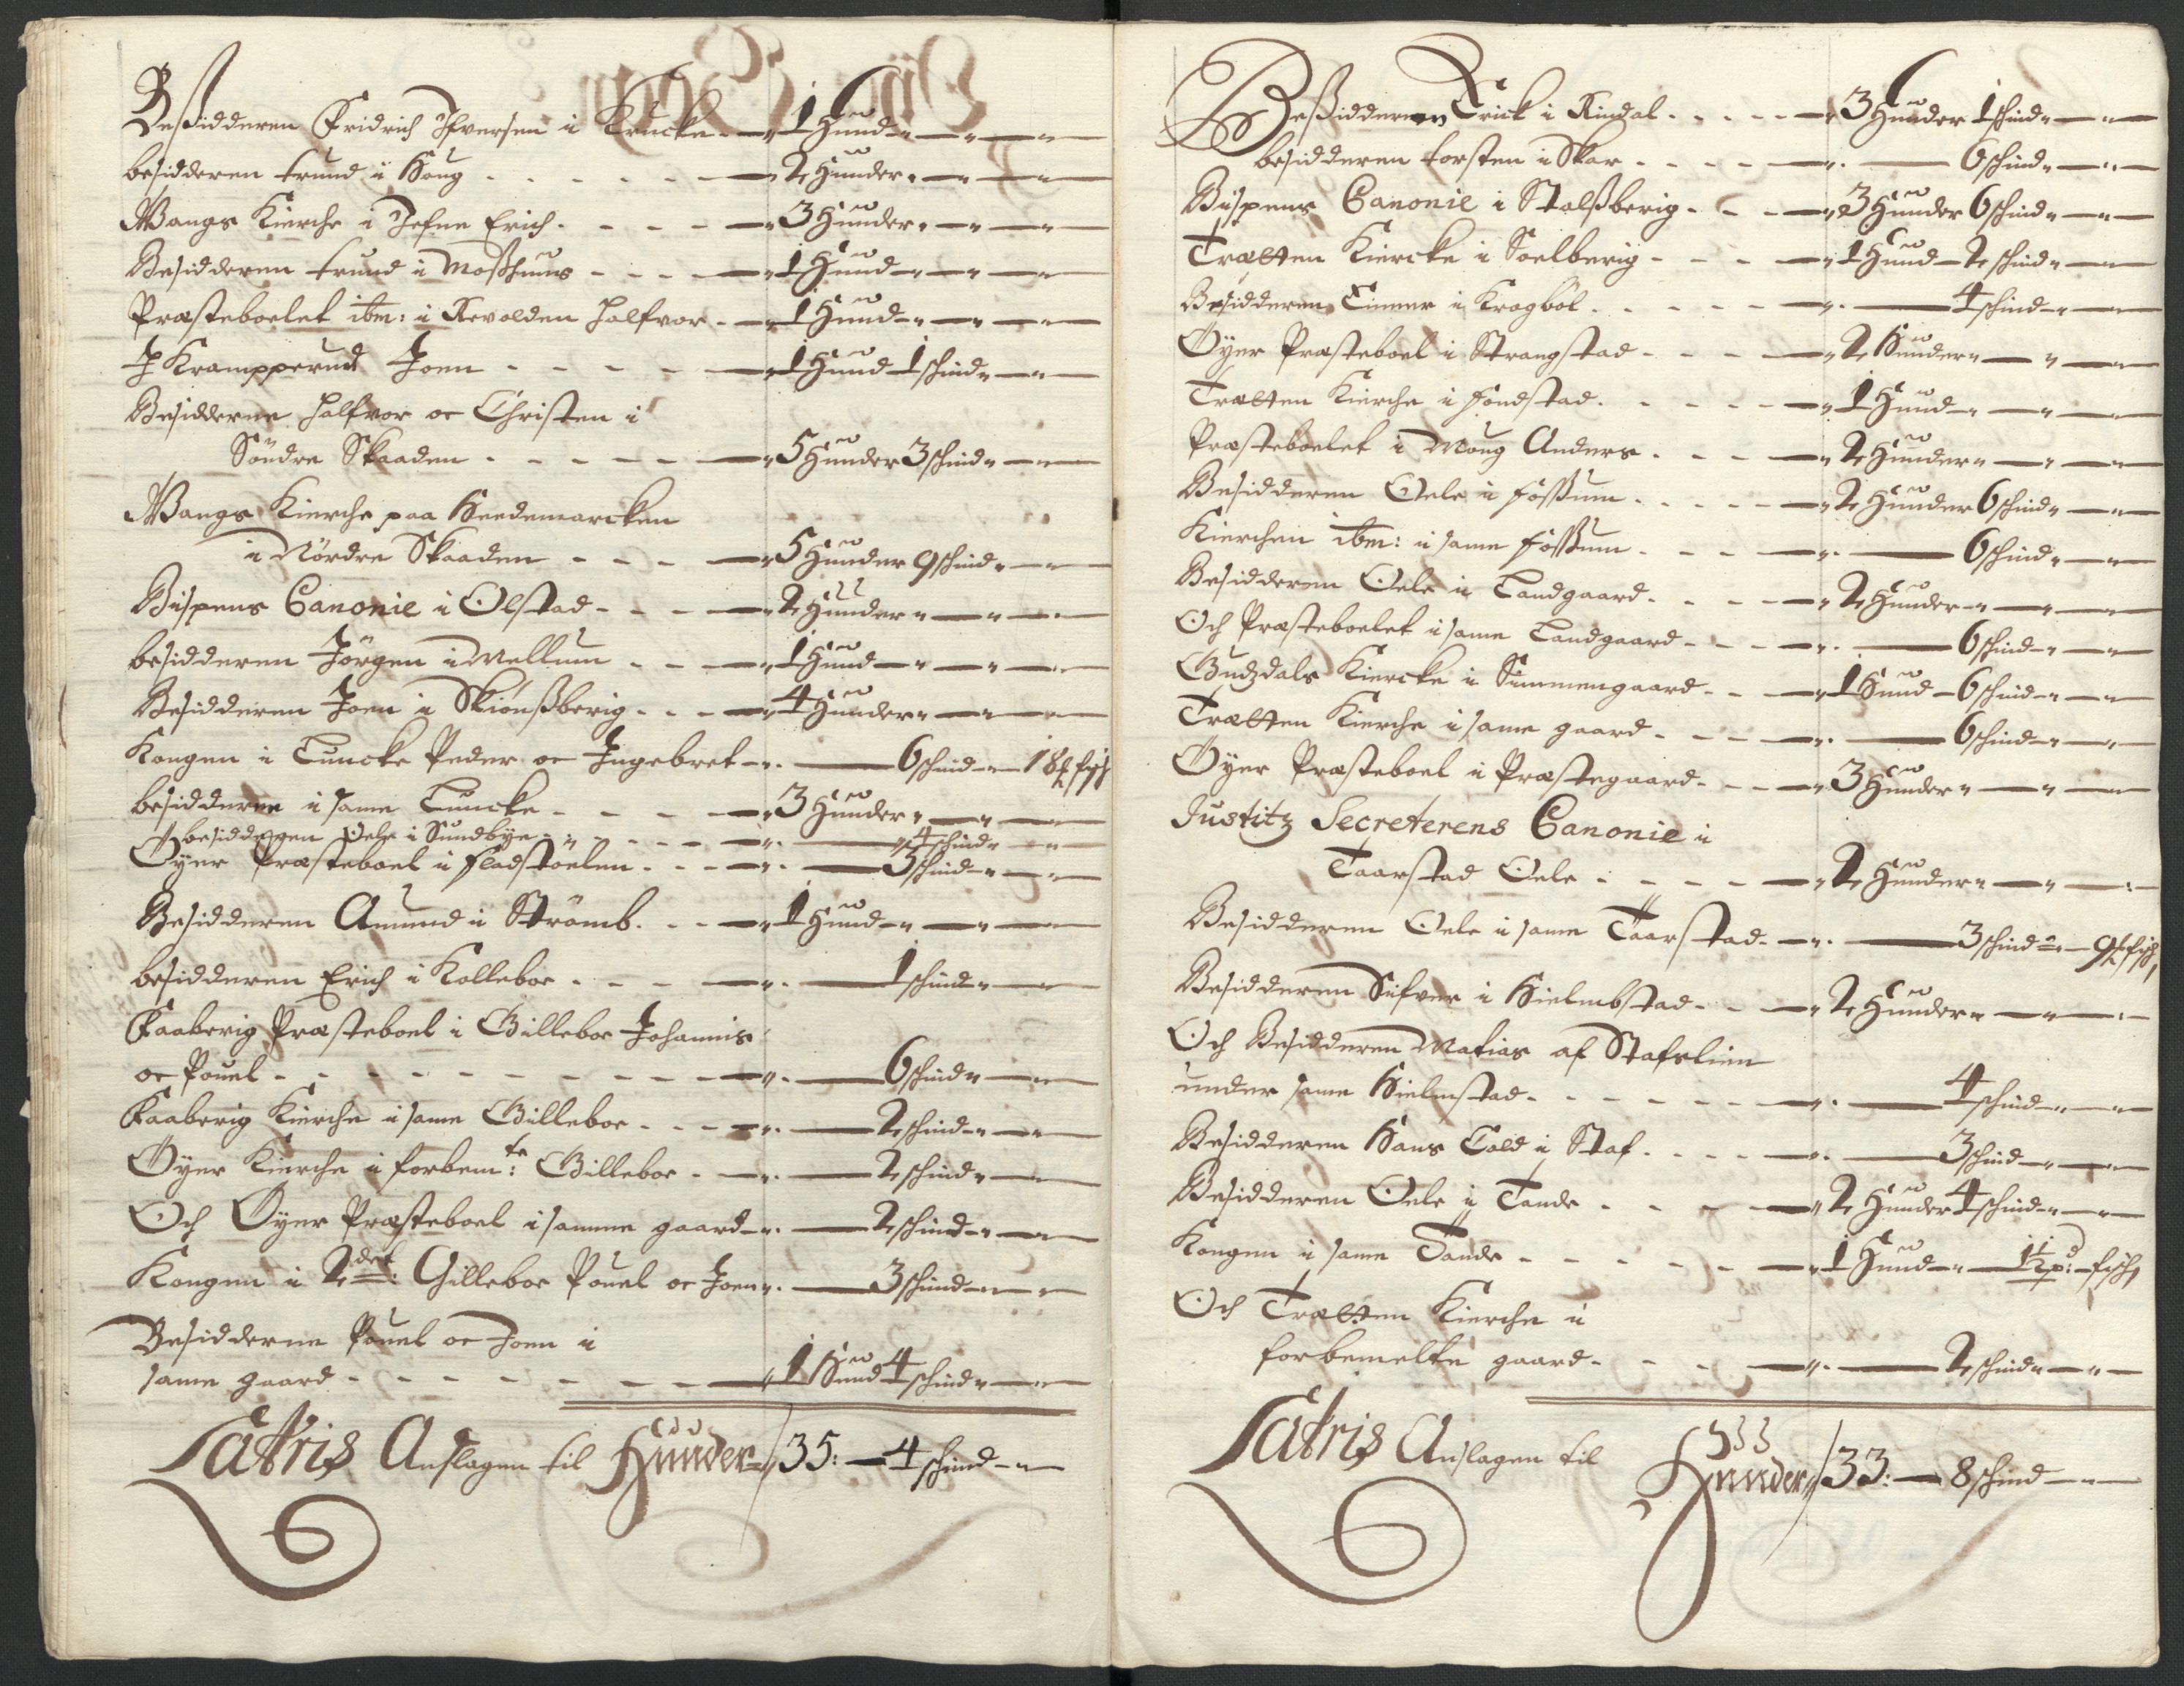 Beßidderen Fridrich Ifversen i Krucke - 1 Hund
besidderen trund i Houg - 2 Hunder
Wangs Kierche i Jefne Erich - 3 Hunder
Besidderen trund i Moßhuus - 1 Hund
Præsteboelet ibm: i Revolden Halfvor - 1 Hund
I Krampperud Joen - 1 Hund 1 schind
Besidderne Halfvor oc Christen i
Söndre Skaaden - 5 Hunder 3 schind
Wangs Kierche paa Heedemarcken
i Nördre Skaaden - 5 Hunder 9 schind
Bispens Canonie i Olstad - 2 Hunder
besidderen Jörgen i Mellum - 1 Hund
Besidderen Joen i Skiönßberig - 4 Hunder
Kongen i Tuncke Peder oc Ingebret - 6 schind - 18 fisch
besidderne i same Tuncke - 3 Hunder
besidderen Oele i Sundbye - 4 schind
Öyer Præsteboel i Fladstoelen - 3 schind
Besidderen Amund i Strömb - 1 Hund
besidderen Erich i Kolleboe - 1 schind
Faaberig Præsteboel i Gilleboe Johannis
oc Pouel - 6 schind
Faaberig Kierche i same Gilleboe - 2 schind
Öyer Kierche i forbemte: Gilleboe - 2 schind
Och Öyer Præsteboel i samme gaard - 2 schind
Kongen i 2det: Gilleboe Pouel oc Joen - 3 schind
Besidderne Pouel oc Joen i
same gaard - 1 Hund 4 schind
Latris Anslagen til Hunder 35: - 4 schind
Beßidderen Erick i Rindal - 3 Hunder 1 schind
besidderen torsten i Skar - 6 schind
Bispens Canonie i Stalßberig - 3 Hunder 6 schind
Trætten Kiercke i Soelberig - 1 Hund - 2 schind
Besidderen Einner i Kragböl - 4 schind
Öyer Præsteboel i Strangstad - 2 Hunder
Trætten Kierche i Fondstad - 1 Hund
Præsteboelet i Moug Anders - 2 Hunder
Besidderen Oele i Foßßum - 2 Hunder 6 schind
Kierchen ibm: i same Foßßum - 6 schind
Besidderen Oele i Landgaard - 2 Hunder
Och Præsteboelet i same Landgaard - 6 schind
Gudzdals Kiercke i Simmengaard - 1 Hund - 6 schind
Trætten Kierche i same gaard - 6 schind
Öyer Præsteboel i Præstegaard - 3 Hunder
Justitz Secreterens Canonie i
Taarstad Oele - 2 Hunder
Besidderen Oele i same Taarstad - 3 schind - 9 fisch
Besidderen Sifver i Hielmbstad - 2 Hunder
Och Besidderen Matias af Stafslien
under same Hielmstad - 4 schind
Besidderen Hans Cold i Staf - 3 schind
Besidderen Oele i Tande - 2 Hunder 4 schind
Kongen i same Tande - 1 Hund - 1½ pd: fisch
Och Trætten Kierche i
forbemelte gaard - 2 schind
Latris Anslagen til Hunder 33: - 8 schind